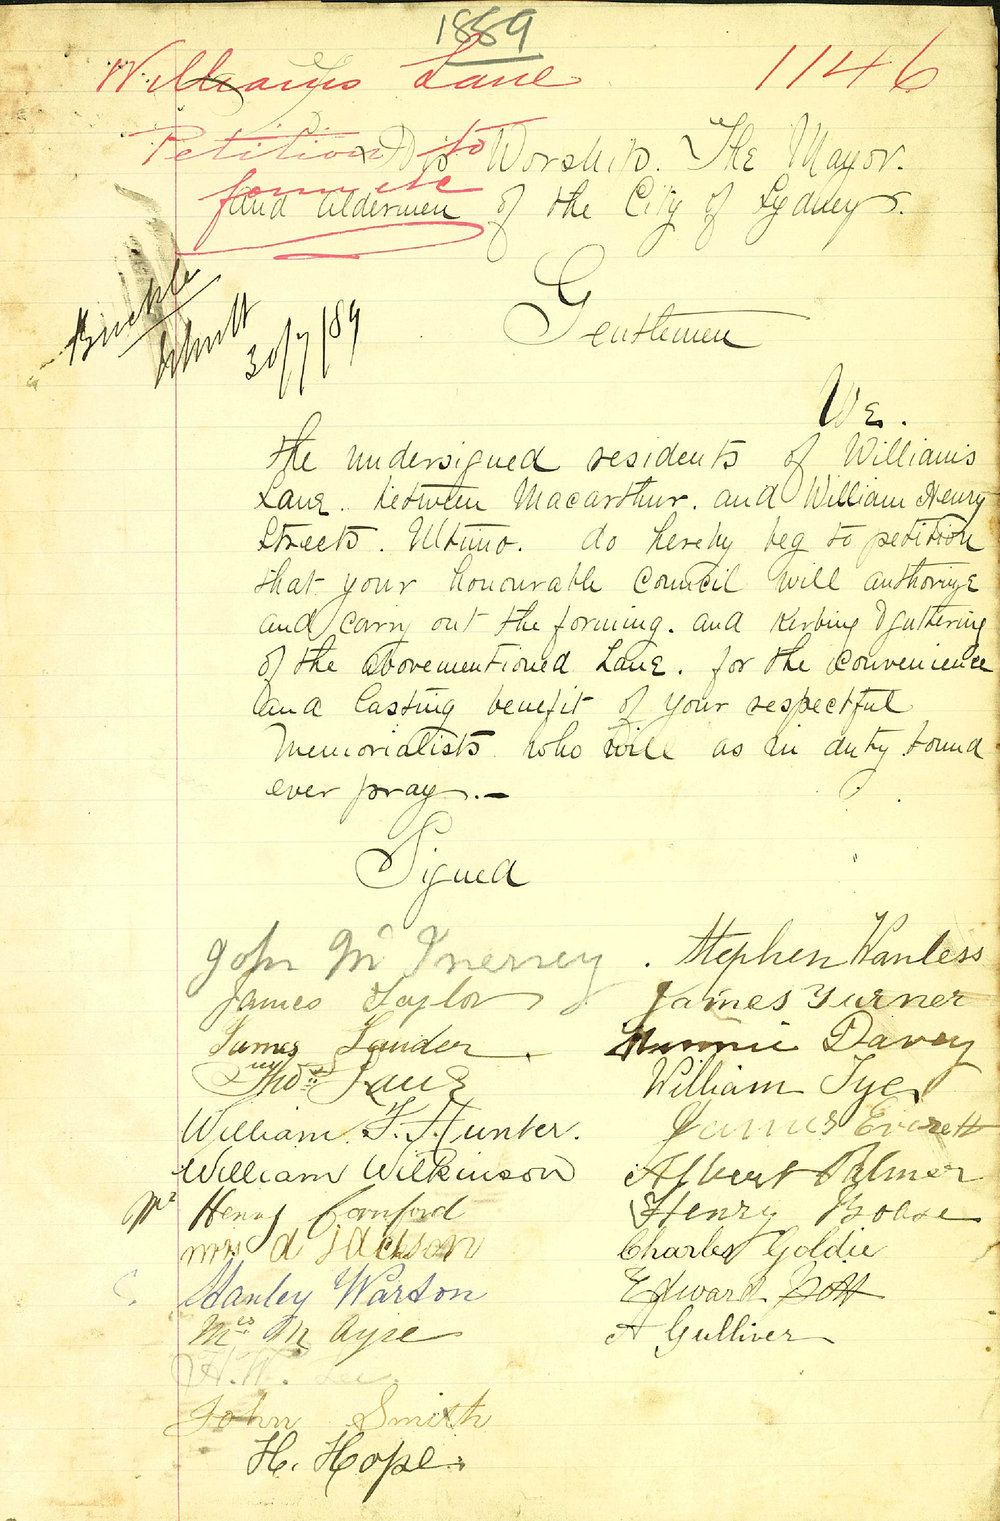 1889
Williams Lane 1146
Petition to
form etc
To His Worship. The Mayor.
and aldermen of the City of Sydney.
Buckle
30/7/89
Gentlemen
We.
the undersigned residents of Williams
Lane. between Macarthur. and William Henry
Streets. Ultimo. do hereby beg to petition
that your honourable Council will authorize
and carry out the forming. and Kerbing & guttering
of the abovementioned Lane. for the convenience
and lasting benefit of your respectful
Memorialists who will as in duty bound
ever pray.—
Signed
John McInerney. Stephen Wanless
James Taylor James Turner
James Lander. Minnie Davey
Thos Lane William Tye
William. F. Hunter. James Everett
William Wilkinson Albert Palmer
Mr Henry Cornford Henry Boase
mrs a Jackson Charles Goldie
Stanley Warton Edward Bott
Mrs M Ayre A Gulliver
H. W. Lee
John Smith
H. Hope.